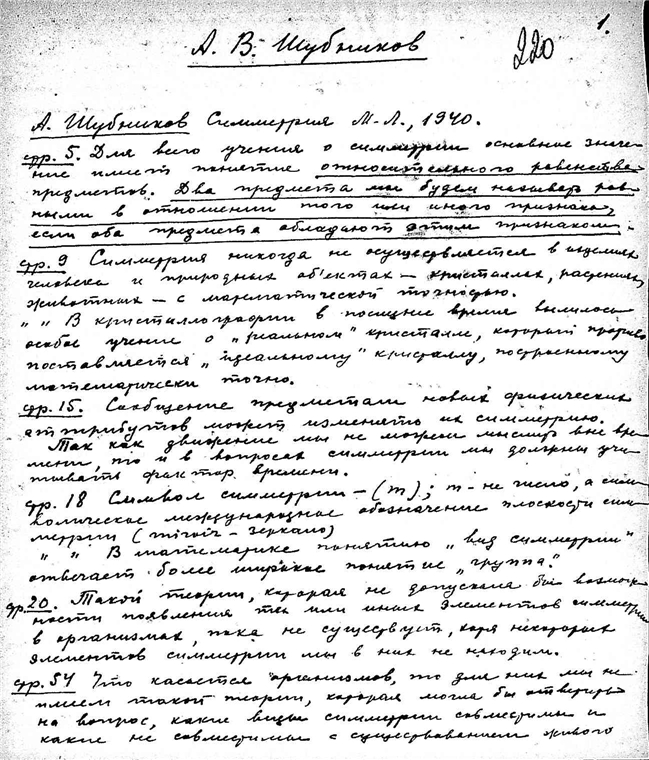 1.
А. В. Шубников
220
А. Шубников Симметрия М.-Л., 1940.
стр. 5. Для всего учения о симметрии основное значе-
ние имеет понятие относительного равенства
предметов. Два предмета мы будем называть рав-
ными в отношении того или иного признака,
если оба предмета обладают этим признаком.
стр. 9 Симметрия никогда не осуществляется в изделиях
человека и природных об'ектах – кристаллах, растениях,
животных – с математической точностью.
" " В кристаллографии в последнее время вылилось
особое учение о „реальном" кристалле, который противо
поставляется „идеальному" кристаллу, построенному
математически точно.
стр. 15. Сообщение предметам новых физических
аттрибутов может изменять их симметрию.
Так как движение мы не можем мыслить вне вре-
мени, то и в вопросах симметрии мы должны учи-
тывать фактор времени.
стр. 18 Символ симметрии – (m); m – не число, а сим-
волическое международное обозначение плоскости сим-
метрии (miroir – зеркало)
" " В математике понятию „вид симметрии"
отвечает более широкое понятие „группа".
стр. 20. Такой теории, которая не допускала бы возмож-
ности появления тех или иных элементов симметрии
в организмах, пока не существует, хотя некоторых
элементов симметрии мы в них не находим.
стр. 54 Что касается организмов, то для них мы не
имеем такой теории, которая могла бы ответить
на вопрос, какие виды симметрии совместимы и
какие не совместимы с существованием живого